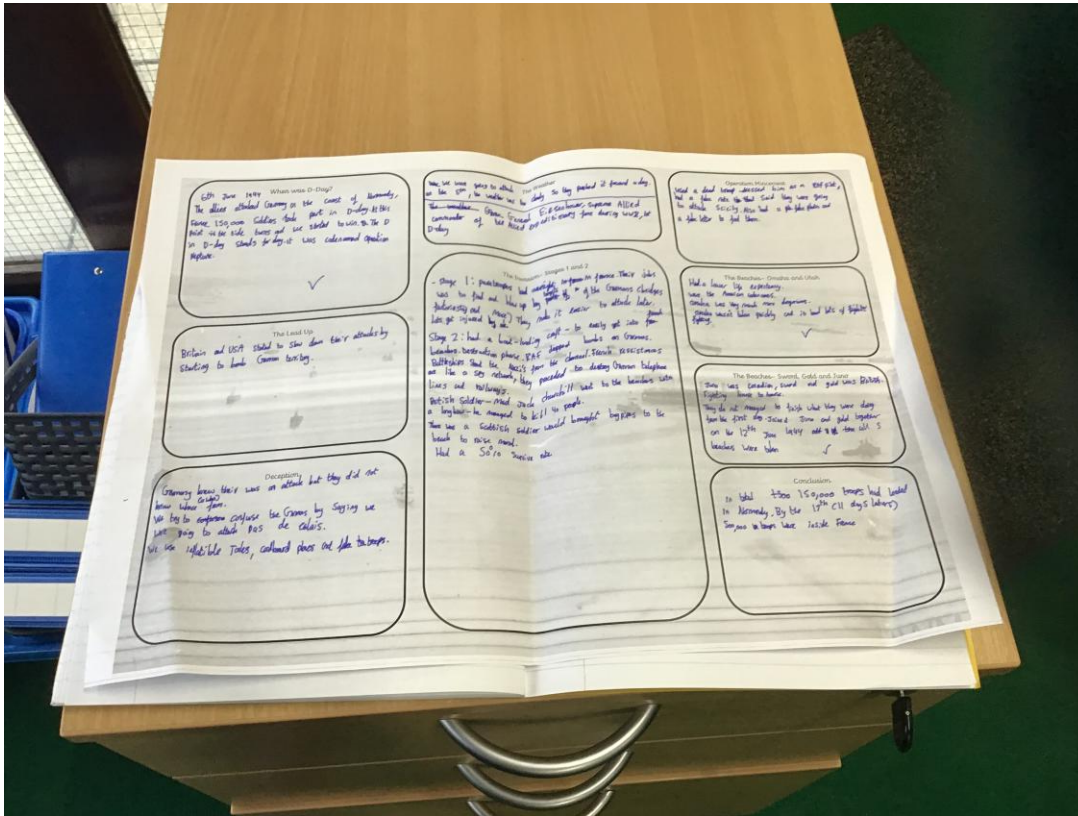 When was D-Day?
6th June 1944
The allies attacked Germany on the coast of Normandy,
150,000 Soldiers took part in D-day. At this
point the side turns and we started to win. The D
in D-day stands for day. it was codenamed operation
Neptune.
The Lead Up
Britain and USA started to slow down their attacks by
starting to bomb German territory.
Deception
Germany knew their was an attack but they did not
know where from.
(or when)
We try to confuse the Germans by saying we
were going to attack Pas de calais.
We use inflatible Tanks, cardboard planes and fake troops.
The Weather
we were going to attack
on the 5th, the weather was to cloudy so they pushed it forward a day.
General Eisenhower, supreme Allied
commander of the Allied expeditionary force during WW2, for
D-day
The Invasion- Stages 1 and 2
- Stage 1: paratroopers had overnight in france. Their jobs
was to find and blow up of the Germans
They make it easier to attack later.
Lots got injured by
Stage 2: had a boat-landing craft - to easily get into
beaches. Destruction phase. RAF dropped bombs on Germans.
Battleships shot the nazi's from the channel. French resistance
are like a spy network, they proceeded to destroy German telephone
lines and railways.
British Soldier - Mad Jack churchill went to the beaches with
a longbow - he managed to kill 40 people.
There was a Scottish soldier would brought bagpipes to the
beach to raise moral.
Had a 50% survive rate
Operation Mincemeat
used a dead tramp dressed him as a RAF pilot,
had a fake note that said they were going
to attack Scicily. Also had a fake photo and
a fake letter to fool them.
The Beaches- Omaha and Utah
Had a lower life expectancy.
were the American codenames.
omaha was very much more dangerous.
omaha wasn't taken quickly and had lots of
fighting.
The Beaches- Sword, Gold and Juno
Juno was canadian, sword and gold was British.
Fighting house to house.
They do not managed to finish what they were doing
from the first day. Joined Juno and gold together
on the 12th June 1944 all 5
beaches were taken
Conclusion
In total 150,000 troops had landed
in Normandy. By the 17th (11 days later)
500,000 troops were inside France